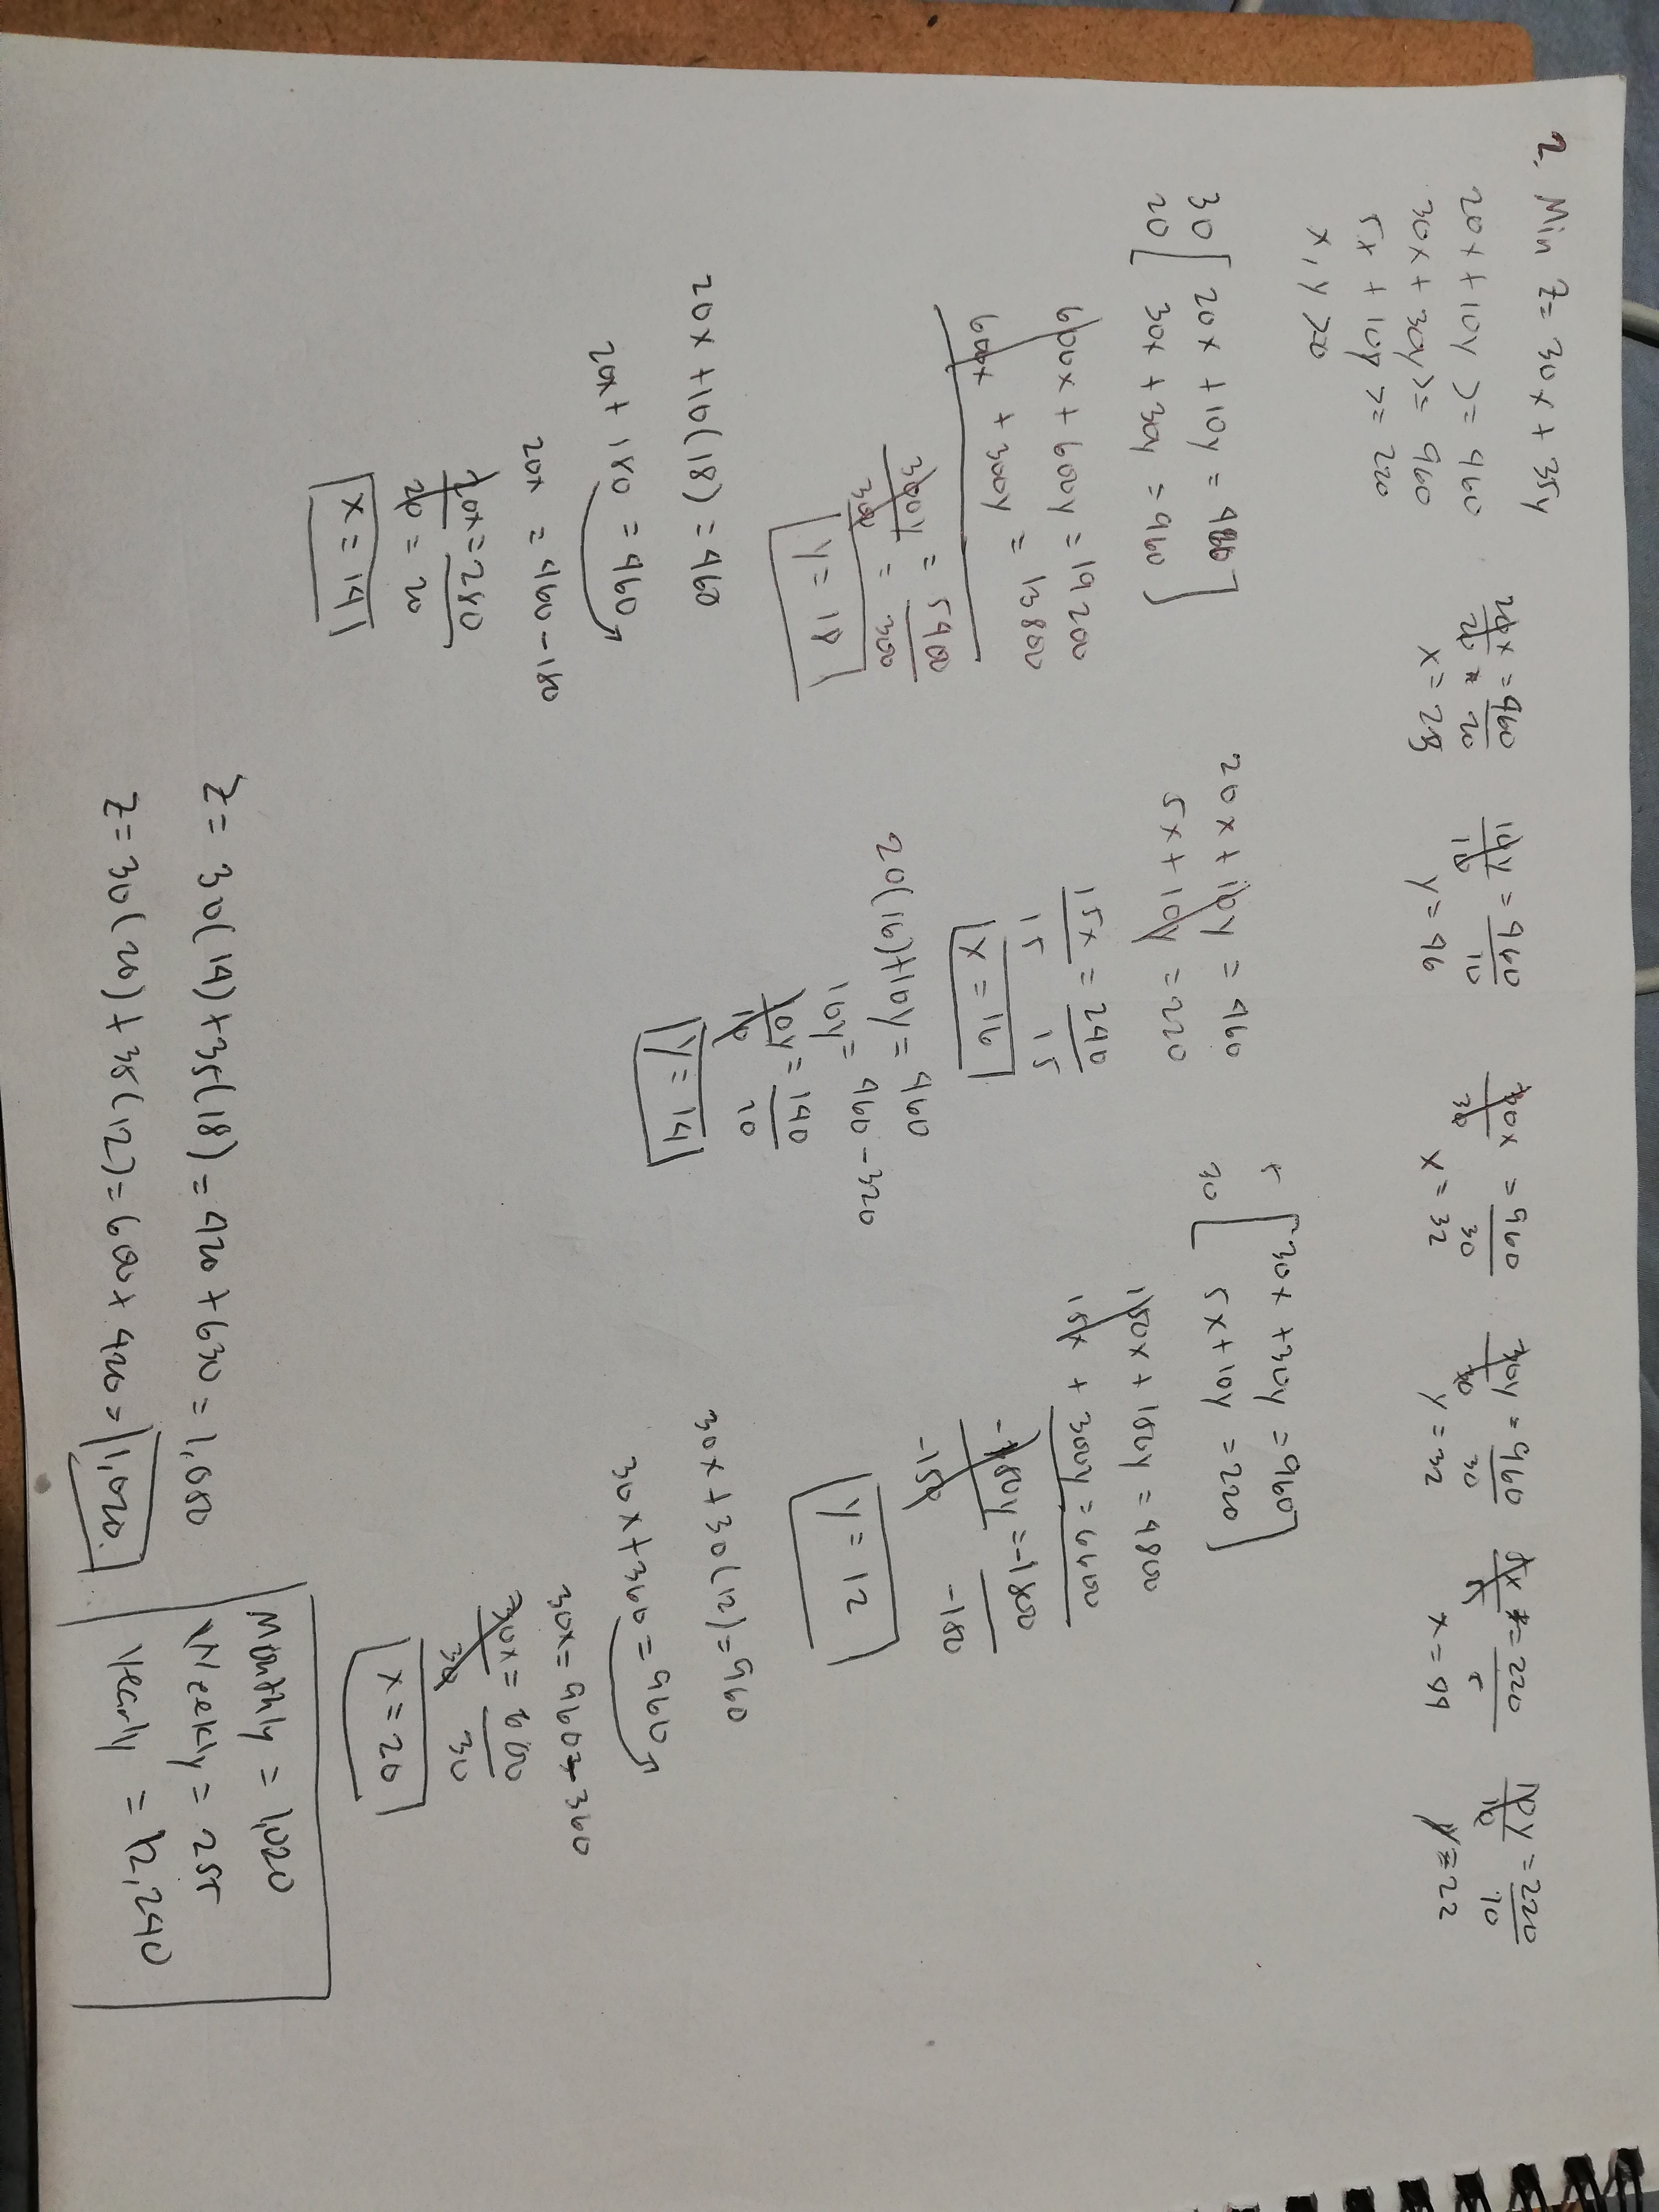 2. Min Z = 30x + 35y
20x + 10y >= 460
30x + 30y >= 960
5x + 10y >= 220
x, y >0
20x = 460
20 = 20
x = 23
10y = 460
10 10
y = 46
30x = 960
30 30
x = 32
30y = 960
30 30
y = 32
5x = 220
5 5
x = 44
10y = 220
10 10
y = 22
30 [ 20x + 10y = 460 ]
20 [ 30x + 30y = 960 ]
600x + 600y = 19200
600x + 300y = 13800
300y = 5400
300 = 300
y = 18
20x + 10(18) = 460
20x + 180 = 460
20x = 460 - 180
20x = 280
20 = 20
x = 14
20x + 10y = 460
5x + 10y = 220
15x = 240
15 15
x = 16
20(16) + 10y = 460
10y = 460 - 320
10y = 140
10 10
y = 14
5 [ 30x + 30y = 960 ]
30 [ 5x + 10y = 220 ]
150x + 150y = 4800
15x + 300y = 6600
-150y = -1800
-150 -150
y = 12
30x + 30(12) = 960
30x + 360 = 960
30x = 960 - 360
30x = 600
30 30
x = 20
Z = 30(14) + 35(18) = 420 + 630 = 1,050
Z = 30(20) + 35(12) = 600 + 420 = 1,020.
Monthly = 1,020
Weekly = 255
Yearly = 12,240